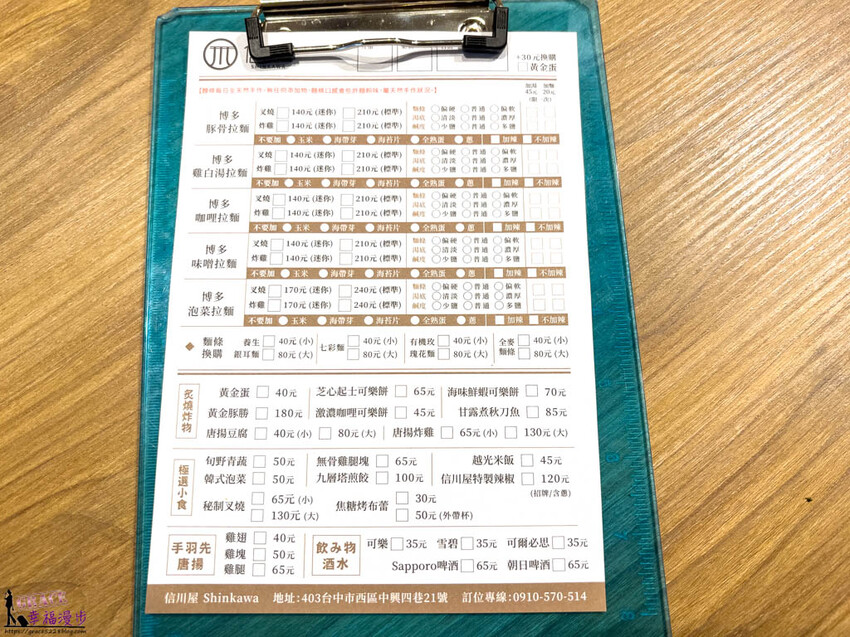 +30元換購
黃金蛋
加湯 加麵
45元 20元
博多
豚骨拉麵
叉燒 140元(迷你) 210元(標準)
炸雞 140元(迷你) 210元(標準)
麵條 偏硬 普通 偏軟
湯底 清淡 普通 濃厚
鹹度 少鹽 普通 多鹽
不要加 玉米 海帶芽 海苔片 全熟蛋 蔥 加辣 不加辣
博多
雞白湯拉麵
叉燒 140元(迷你) 210元(標準)
炸雞 140元(迷你) 210元(標準)
麵條 偏硬 普通 偏軟
湯底 清淡 普通 濃厚
鹹度 少鹽 普通 多鹽
不要加 玉米 海帶芽 海苔片 全熟蛋 蔥 加辣 不加辣
博多
咖哩拉麵
叉燒 140元(迷你) 210元(標準)
炸雞 140元(迷你) 210元(標準)
麵條 偏硬 普通 偏軟
湯底 清淡 普通 濃厚
鹹度 少鹽 普通 多鹽
不要加 玉米 海帶芽 海苔片 全熟蛋 蔥 加辣 不加辣
博多
味噌拉麵
叉燒 140元(迷你) 210元(標準)
炸雞 140元(迷你) 210元(標準)
麵條 偏硬 普通 偏軟
湯底 清淡 普通 濃厚
鹹度 少鹽 普通 多鹽
不要加 玉米 海帶芽 海苔片 全熟蛋 蔥 加辣 不加辣
博多
泡菜拉麵
叉燒 170元(迷你) 240元(標準)
炸雞 170元(迷你) 240元(標準)
麵條 偏硬 普通 偏軟
湯底 清淡 普通 濃厚
鹹度 少鹽 普通 多鹽
不要加 玉米 海帶芽 海苔片 全熟蛋 蔥 加辣 不加辣
麵條
換購
養生
銀耳麵 40元(小) 80元(大)
七彩麵 40元(小) 80元(大)
有機玫
瑰花麵 40元(小) 80元(大)
全麥
麵條 40元(小) 80元(大)
炙燒炸物
黃金蛋 40元 芝心起士可樂餅 65元 海味鮮蝦可樂餅 70元
黃金豚勝 180元 激濃咖哩可樂餅 45元 甘露煮秋刀魚 85元
唐揚豆腐 40元(小) 80元(大) 唐揚炸雞 65元(小) 130元(大)
極選小食
旬野青蔬 50元 無骨雞腿塊 65元 越光米飯 45元
韓式泡菜 50元 九層塔煎餃 100元 信川屋特製辣椒 120元
(招牌/含蔥)
秘制叉燒 65元(小) 130元(大)
焦糖烤布蕾 30元 50元(外帶杯)
手羽先
唐揚
雞翅 40元
雞塊 50元
雞腿 65元
飲み物
酒水
可樂 35元 雪碧 35元 可爾必思 35元
Sapporo啤酒 65元 朝日啤酒 65元
信川屋 Shinkawa 地址:403台中市西區中興四巷21號 訂位專線:0910-570-514
幸福漫步